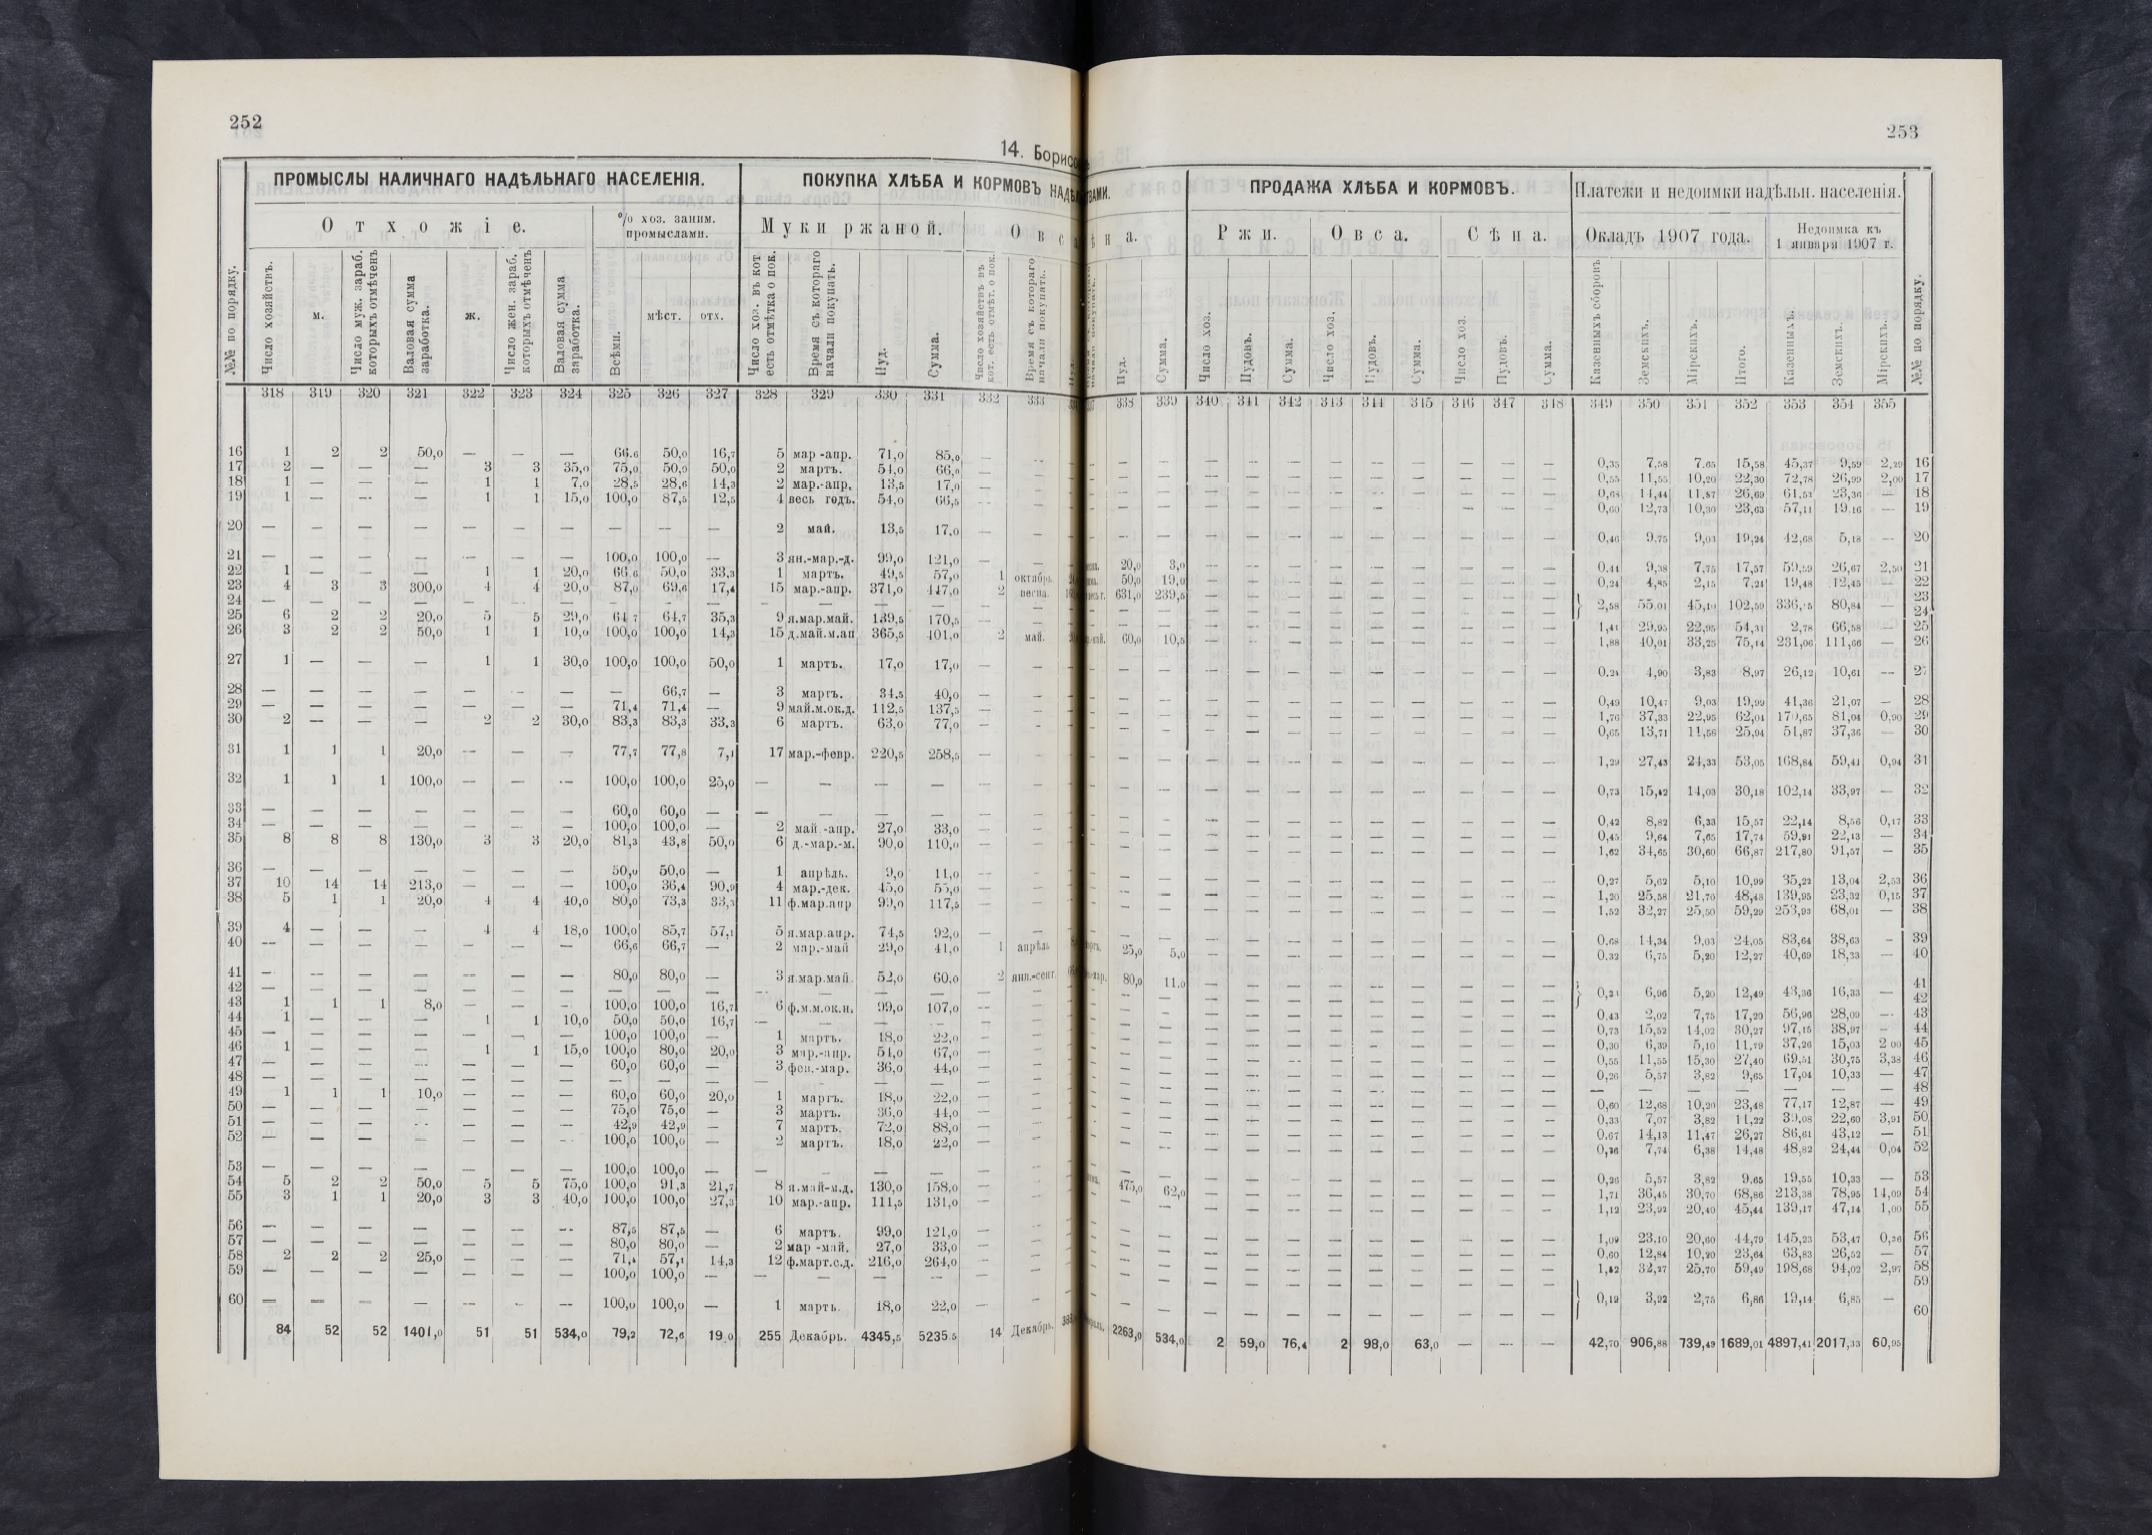 252
253
14. Борисо
ПРОМЫСЛЫ НАЛИЧНАГО НАДѢЛЬНАГО НАСЕЛЕНІЯ.
ПОКУПКА ХЛѢБА И КОРМОВЪ
ПРОДАЖА ХЛѢБА И КОРМОВЪ.
Платежи и недоимки надѣльн. населенія.
Отхожіе.
% хоз. заним. промыслами.
Муки ржаной.
Ржи. Овса. Сѣна.
Окладъ 1907 года.
Недоимка къ 1 января 1907 г.
№№ по порядку.
Число хозяйствъ.
м.
Число муж. зараб. которыхъ отмѣченъ
Валовая сумма заработка.
ж.
Число жен. зараб. которыхъ отмѣченъ
Валовая сумма заработка.
Всѣми.
мѣст.
отх.
Число хоз. въ кот. есть отмѣтка о пок.
Время съ котораго начали покупать.
Пуд.
Сумма.
Число хозяйствъ въ кот. есть отмѣт. о пок.
Время съ котораго начали покупать.
Пуд.
Сумма.
Число хоз.
Пудовъ.
Сумма.
Число хоз.
Пудовъ.
Сумма.
Число хоз.
Пудовъ.
Сумма.
Казенныхъ сборовъ
Земскихъ.
Мірскихъ.
Итого.
Казенныхъ.
Земскихъ.
Мірскихъ.
№№ по порядку.
318 319 320 321 322 323 324 325 326 327 328 329 330 331 332 333
338 339 340 341 342 343 344 345 346 347 348 349 350 351 352 353 354 355
16 1 2 2 50,0 — — — 66,6 50,0 16,7 5 мар-апр. 71,0 85,0 —
17 2 — — — 3 3 35,0 75,0 50,0 50,0 2 мартъ. 54,0 66,0 —
18 1 — — — 1 1 7,0 28,5 28,6 14,3 2 мар.-апр. 13,5 17,0 —
19 1 — — — 1 1 15,0 100,0 87,5 12,5 4 весь годъ. 54,0 66,5 —
20 — — — — — — — — — — 2 май. 13,5 17,0 —
21 — — — — — — — 100,0 100,0 — 3 ян.-мар.-д. 99,0 121,0 —
22 1 — — — 1 1 20,0 66,6 50,0 33,3 1 мартъ. 49,5 57,0 1 октябрь.
23 4 3 3 300,0 4 4 20,0 87,0 69,6 17,4 15 мар.-апр. 371,0 447,0 2 весна.
24 — — — — — — — — — — — — — — —
25 6 2 2 20,0 5 5 29,0 64,7 64,7 35,3 9 я.мар.май. 139,5 170,5 —
26 3 2 2 50,0 1 1 10,0 100,0 100,0 14,3 15 д.май.м.ап 365,5 401,0 2 май.
27 1 — — — 1 1 30,0 100,0 100,0 50,0 1 мартъ. 17,0 17,0 —
28 — — — — — — — — 66,7 — 3 мартъ. 34,5 40,0 —
29 — — — — — — — 71,4 71,4 — 9 май.м.ок.д. 112,5 137,5 —
30 2 — — — 2 2 30,0 83,3 83,3 33,3 6 мартъ. 63,0 77,0 —
31 1 1 1 20,0 — — — 77,7 77,8 7,1 17 мар.-февр. 220,5 258,5 —
32 1 1 1 100,0 — — — 100,0 100,0 25,0 — — — — —
33 — — — — — — — 60,0 60,0 — — — — — —
34 — — — — — — — 100,0 100,0 — 2 май.-апр. 27,0 33,0 —
35 8 8 8 130,0 3 3 20,0 81,3 43,8 50,0 6 д.-мар.-м. 90,0 110,0 —
36 — — — — — — — 50,0 50,0 — 1 апрѣль. 9,0 11,0 —
37 10 14 14 213,0 — — — 100,0 36,4 90,9 4 мар.-дек. 45,0 55,0 —
38 5 1 1 20,0 4 4 40,0 80,0 73,3 33,3 11 ф.мар.апр 99,0 117,5 —
39 4 — — — 4 4 18,0 100,0 85,7 57,1 5 я.мар.апр. 74,5 92,0 —
40 — — — — — — — 66,6 66,7 — 2 мар.-май 29,0 41,0 1 апрѣль
41 — — — — — — — 80,0 80,0 — 3 я.мар.май. 52,0 60,0 2 янв.-сент.
42 — — — — — — — — — — — — — — —
43 1 1 1 8,0 — — — 100,0 100,0 16,7 6 ф.м.м.ок.н. 99,0 107,0 —
44 1 — — — 1 1 10,0 50,0 50,0 16,7 — — — — —
45 — — — — — — — 100,0 100,0 — 1 мартъ. 18,0 22,0 —
46 1 — — — 1 1 15,0 100,0 80,0 20,0 3 мар.-апр. 54,0 67,0 —
47 — — — — — — — 60,0 60,0 — 3 фев.-мар. 36,0 44,0 —
48 — — — — — — — — — — — — — — —
49 1 1 1 10,0 — — — 60,0 60,0 20,0 1 мартъ. 18,0 22,0 —
50 — — — — — — — 75,0 75,0 — 3 мартъ. 36,0 44,0 —
51 — — — — — — — 42,9 42,9 — 7 мартъ. 72,0 88,0 —
52 — — — — — — — 100,0 100,0 — 2 мартъ. 18,0 22,0 —
53 — — — — — — — 100,0 100,0 — — — — — —
54 5 2 2 50,0 5 5 75,0 100,0 91,3 21,7 8 я.май-м.д. 130,0 158,0 —
55 3 1 1 20,0 3 3 40,0 100,0 100,0 27,3 10 мар.-апр. 111,5 131,0 —
56 — — — — — — — 87,5 87,5 — 6 мартъ. 99,0 121,0 —
57 — — — — — — — 80,0 80,0 — 2 мар-май. 27,0 33,0 —
58 2 2 2 25,0 — — — 71,4 57,1 14,3 12 ф.март.с.д. 216,0 264,0 —
59 — — — — — — — 100,0 100,0 — — — — — —
60 — — — — — — — 100,0 100,0 — 1 мартъ. 18,0 22,0 —
84 52 52 1401,0 51 51 534,0 79,2 72,6 19,0 255 Декабрь. 4345,5 5235,5 14 Декабрь.
— — — — — — — — — — — 0,35 7,58 7,65 15,58 45,37 9,59 2,29 16
— — — — — — — — — — — 0,55 11,55 10,20 22,30 72,78 26,99 2,00 17
— — — — — — — — — — — 0,68 14,44 11,57 26,69 61,53 23,36 — 18
— — — — — — — — — — — 0,60 12,73 10,30 23,63 57,11 19,16 — 19
— — — — — — — — — — — 0,46 9,75 9,03 19,24 42,68 5,18 — 20
20,0 3,0 — — — — — — — — — 0,44 9,38 7,75 17,57 59,59 26,67 2,50 21
50,0 19,0 — — — — — — — — — 0,24 4,85 2,15 7,24 19,48 12,45 — 22
631,0 239,5 — — — — — — — — — 2,58 55,01 45,10 102,59 336,15 80,84 — 23
24
— — — — — — — — — — — 1,41 29,95 22,95 54,31 2,78 66,58 — 25
60,0 10,5 — — — — — — — — — 1,88 40,01 33,25 75,14 231,06 111,66 — 26
— — — — — — — — — — — 0,24 4,90 3,83 8,97 26,12 10,61 — 27
— — — — — — — — — — — 0,49 10,47 9,03 19,99 41,36 21,07 — 28
— — — — — — — — — — — 1,76 37,33 22,95 62,04 170,65 81,04 0,90 29
— — — — — — — — — — — 0,65 13,71 11,58 25,94 51,87 37,36 — 30
— — — — — — — — — — — 1,29 27,43 24,33 53,05 168,84 59,41 0,94 31
— — — — — — — — — — — 0,73 15,42 14,03 30,18 102,14 33,97 — 32
— — — — — — — — — — — 0,42 8,82 6,33 15,57 22,14 8,56 0,17 33
— — — — — — — — — — — 0,45 9,64 7,65 17,74 59,91 22,13 — 34
— — — — — — — — — — — 1,62 34,65 30,60 66,87 217,80 91,57 — 35
— — — — — — — — — — — 0,27 5,62 5,10 10,99 35,22 13,04 2,53 36
— — — — — — — — — — — 1,20 25,58 21,70 48,48 139,95 23,32 0,15 37
— — — — — — — — — — — 1,52 32,27 25,50 59,29 253,93 68,01 — 38
— — — — — — — — — — — 0,68 14,34 9,03 24,05 83,64 38,63 — 39
25,0 5,0 — — — — — — — — — 0,32 6,75 5,20 12,27 40,69 18,33 — 40
80,0 11,0 — — — — — — — — — 41
0,31 6,96 5,20 12,49 43,36 16,33 — 42
— — — — — — — — — — — 0,43 2,02 7,75 17,20 56,96 28,09 — 43
— — — — — — — — — — — 0,73 15,52 14,02 30,27 97,15 38,97 — 44
— — — — — — — — — — — 0,30 6,39 5,10 11,79 37,26 15,03 2,00 45
— — — — — — — — — — — 0,55 11,55 15,30 27,40 69,51 30,75 3,38 46
— — — — — — — — — — — 0,26 5,57 3,82 9,65 17,04 10,33 — 47
— — — — — — — — — — — — — — — — — — 48
— — — — — — — — — — — 0,60 12,68 10,20 23,48 77,17 12,87 — 49
— — — — — — — — — — — 0,33 7,07 3,82 11,22 39,08 22,60 3,91 50
— — — — — — — — — — — 0,67 14,13 11,47 26,27 86,61 43,12 — 51
— — — — — — — — — — — 0,36 7,74 6,38 14,48 48,82 24,44 0,04 52
— — — — — — — — — — — 0,26 5,57 3,82 9,65 19,55 10,33 — 53
475,0 62,0 — — — — — — — — — 1,71 36,45 30,70 68,86 213,38 78,95 14,09 54
— — — — — — — — — — — 1,12 23,92 20,40 45,44 139,17 47,14 1,00 55
— — — — — — — — — — — 1,09 23,10 20,60 44,79 145,23 53,47 0,26 56
— — — — — — — — — — — 0,60 12,84 10,20 23,64 63,83 26,52 — 57
— — — — — — — — — — — 1,52 32,27 25,70 59,49 198,68 94,02 2,97 58
59
— — — — — — — — — — — 0,19 3,92 2,75 6,86 19,14 6,85 — 60
2263,0 534,0 2 59,0 76,4 2 98,0 63,0 — — — 42,70 906,88 739,49 1689,01 4897,41 2017,13 60,95